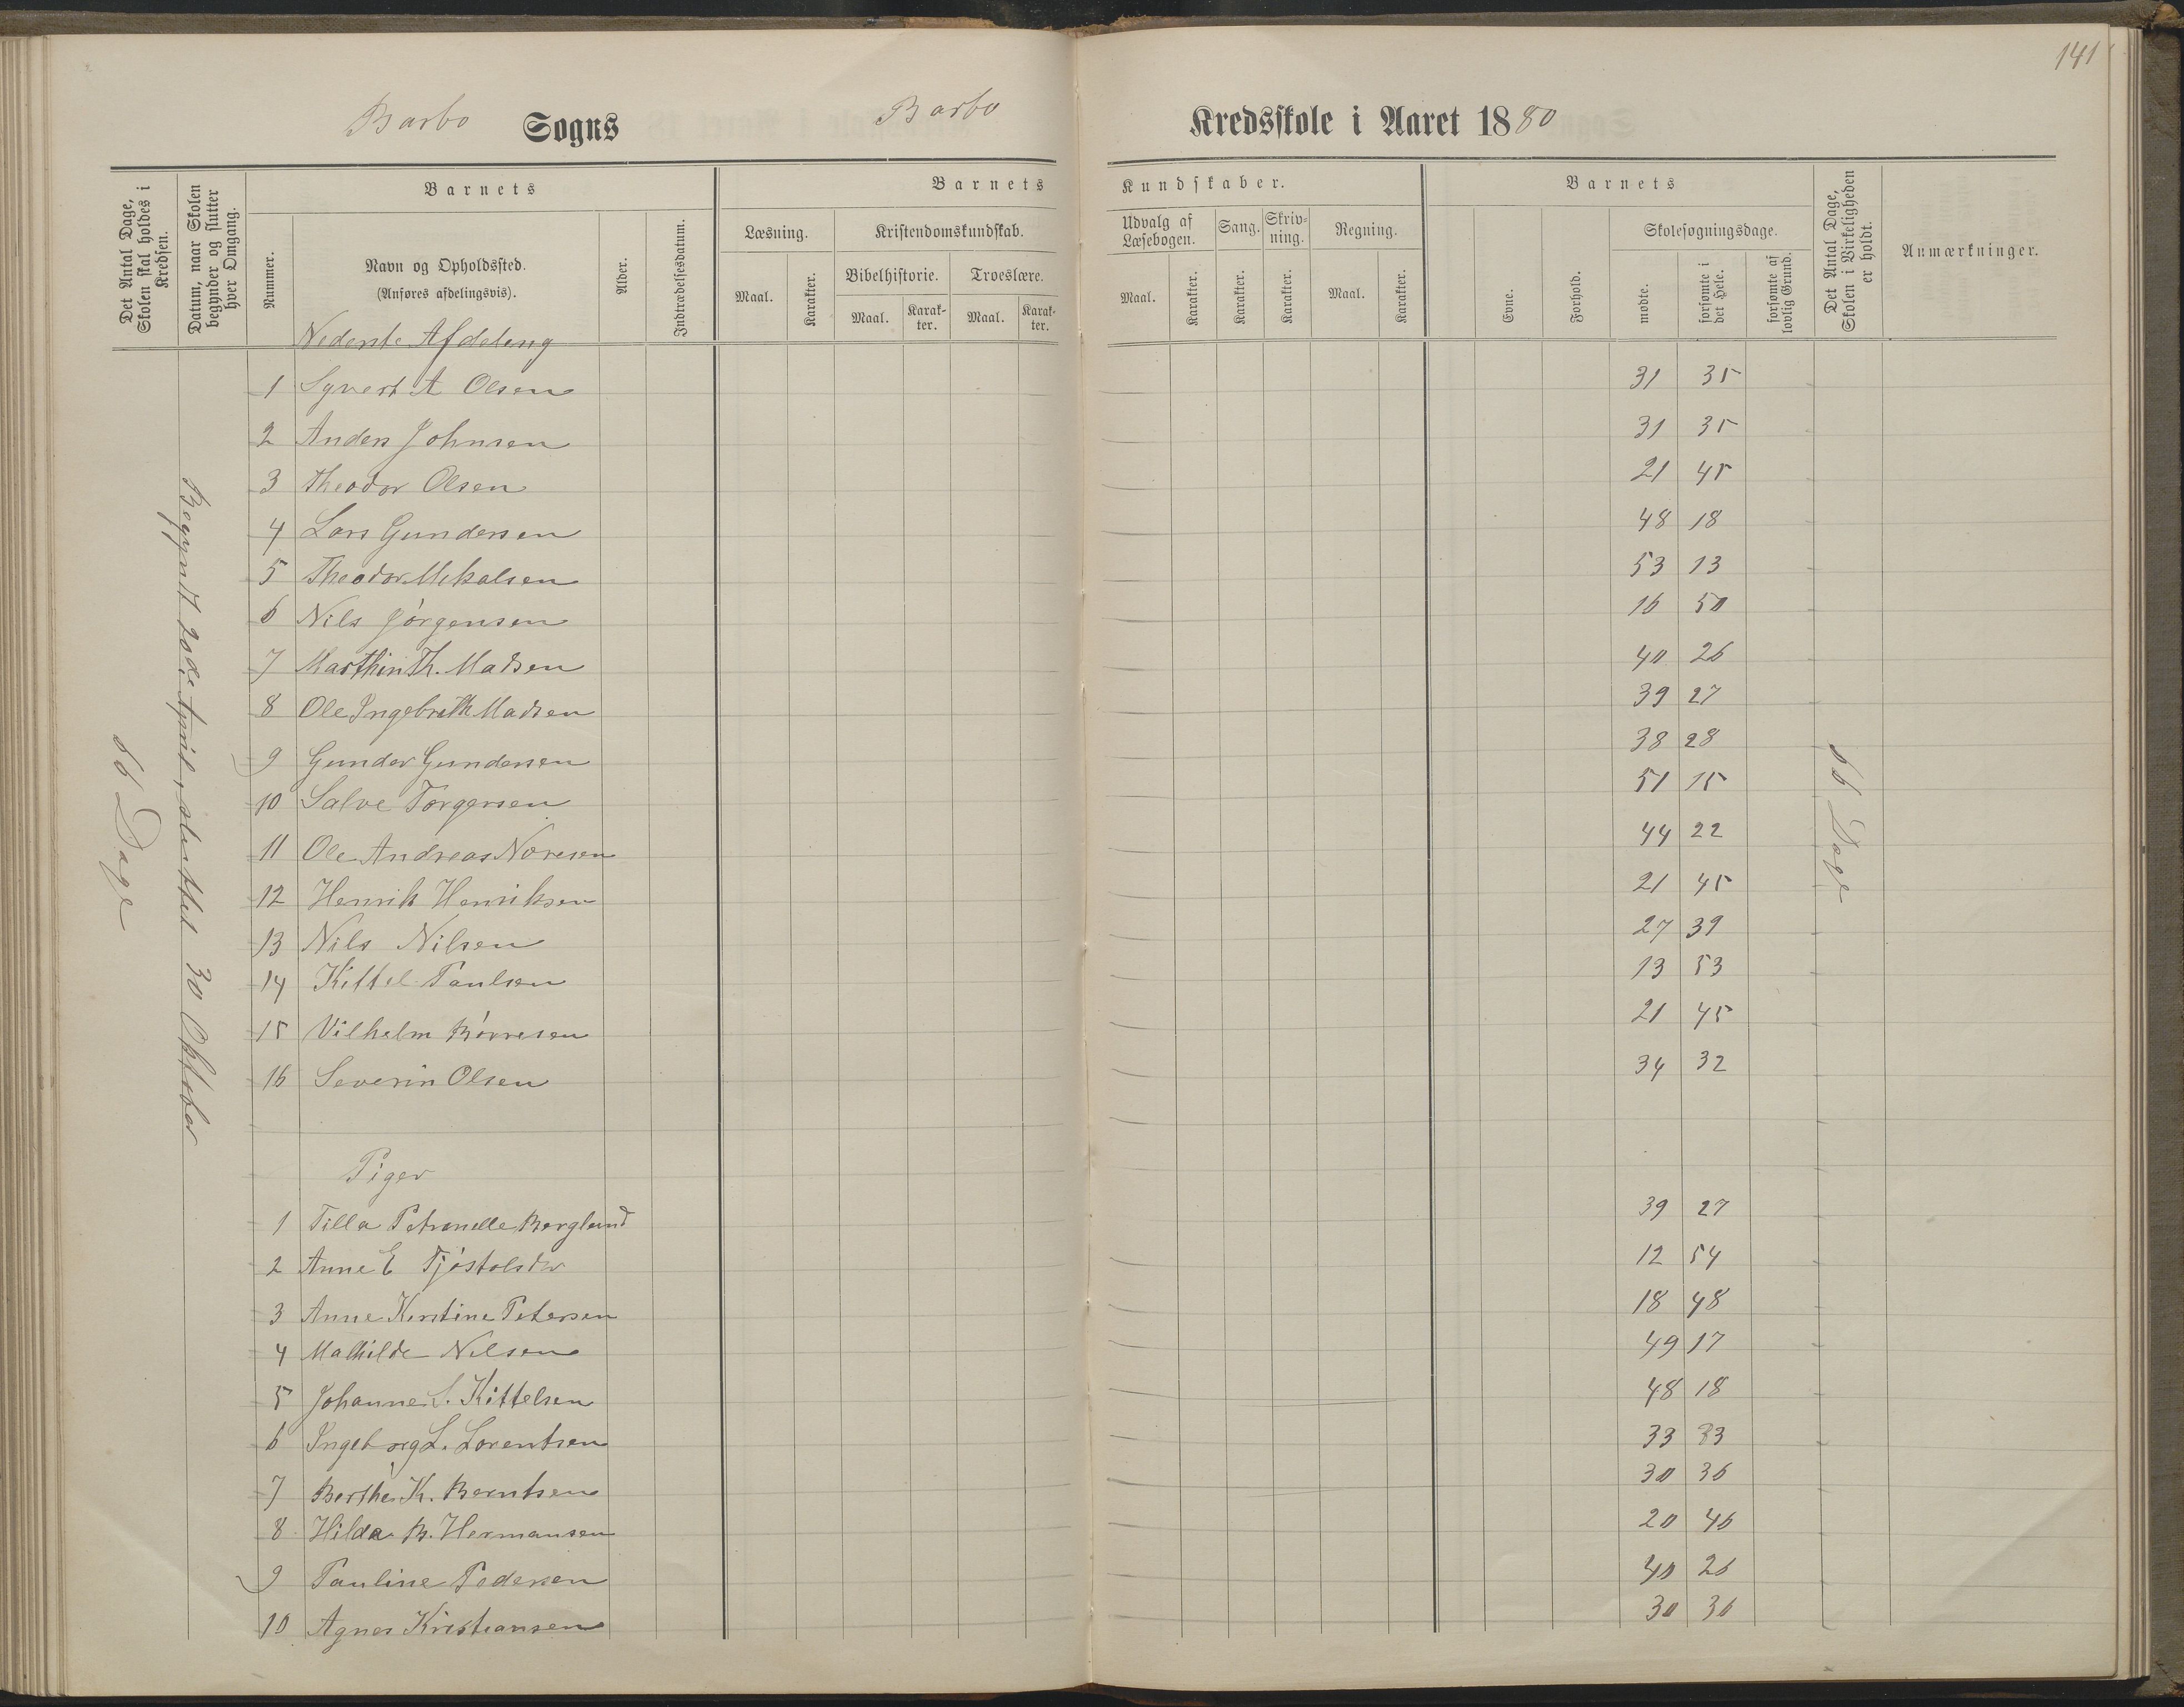 141
Barbo Sogns Barbo Kredsskole i Aaret 1880
Det Antal Dage, Skolen skal holdes i Kredsen.
Datum, naar Skolen begynder og slutter hver Omgang.
Barnets
Nummer.
Navn og Opholdssted.
(Anføres afdelingsvis).
Alder.
Indtrædelsesdatum.
Barnets Kundskaber.
Læsning.
Maal.
Karakter.
Kristendomskundskab.
Bibelhistorie.
Maal.
Karakter.
Troeslære.
Maal.
Karakter.
Udvalg af Læsebogen.
Maal.
Karakter.
Sang.
Karakter.
Skrivning.
Karakter.
Regning.
Maal.
Karakter.
Barnets
Evne.
Forhold.
Skolesøgningsdage.
mødte.
forsømte i det Hele.
forsømte af lovlig Grund.
Det Antal Dage, Skolen i Virkeligheden er holdt.
Anmærkninger.
66 Dage
Begyndt 20de April, sluttet 30 Oktober
66 Dage
Nederste Afdeling
1 Syvert A Olsen 31 35
2 Anders Johnsen 31 35
3 Theodor Olsen 21 45
4 Lars Gundersen 48 18
5 Theodor Mikalsen 53 13
6 Nils Jörgensen 16 50
7 Marthin Th. Madsen 40 26
8 Ole Ingebreth Madsen 39 27
9 Gunder Gundersen 38 28
10 Salve Torgersen 51 15
11 Ole Andreas 44 22
12 Henrik Henriksen 21 45
13 Nils Nilsen 27 39
14 Kittel Paulsen 13 53
15 Vilhelm Börresen 21 45
16 Severin Olsen 34 32
Piger
1 Tilla Petronelle Berglund 39 27
2 Anne E Tjöstolsdr 12 54
3 Anne Kirstine Petersen 18 48
4 Mathilde Nilsen 49 17
5 Johanne S. Kittelsen 48 18
6 Ingeborg L. Lorentsen 33 33
7 Berthe K. Berntsen 30 36
8 Hilda B. Hermansen 20 46
9 Pauline Pedersen 40 26
10 Agnes Kristiansen 30 36